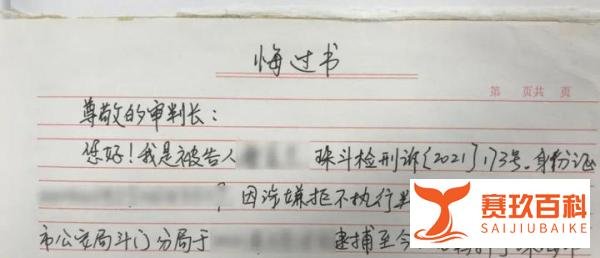 悔过书
第 页共 页
尊敬的审判长：
您好！我是被告人 珠斗检刑诉〔2021〕173号。身份证
，因涉嫌拒不执行
市公安局斗门分局于 逮捕至今
赛玖百科
SAIJIUBAIKE